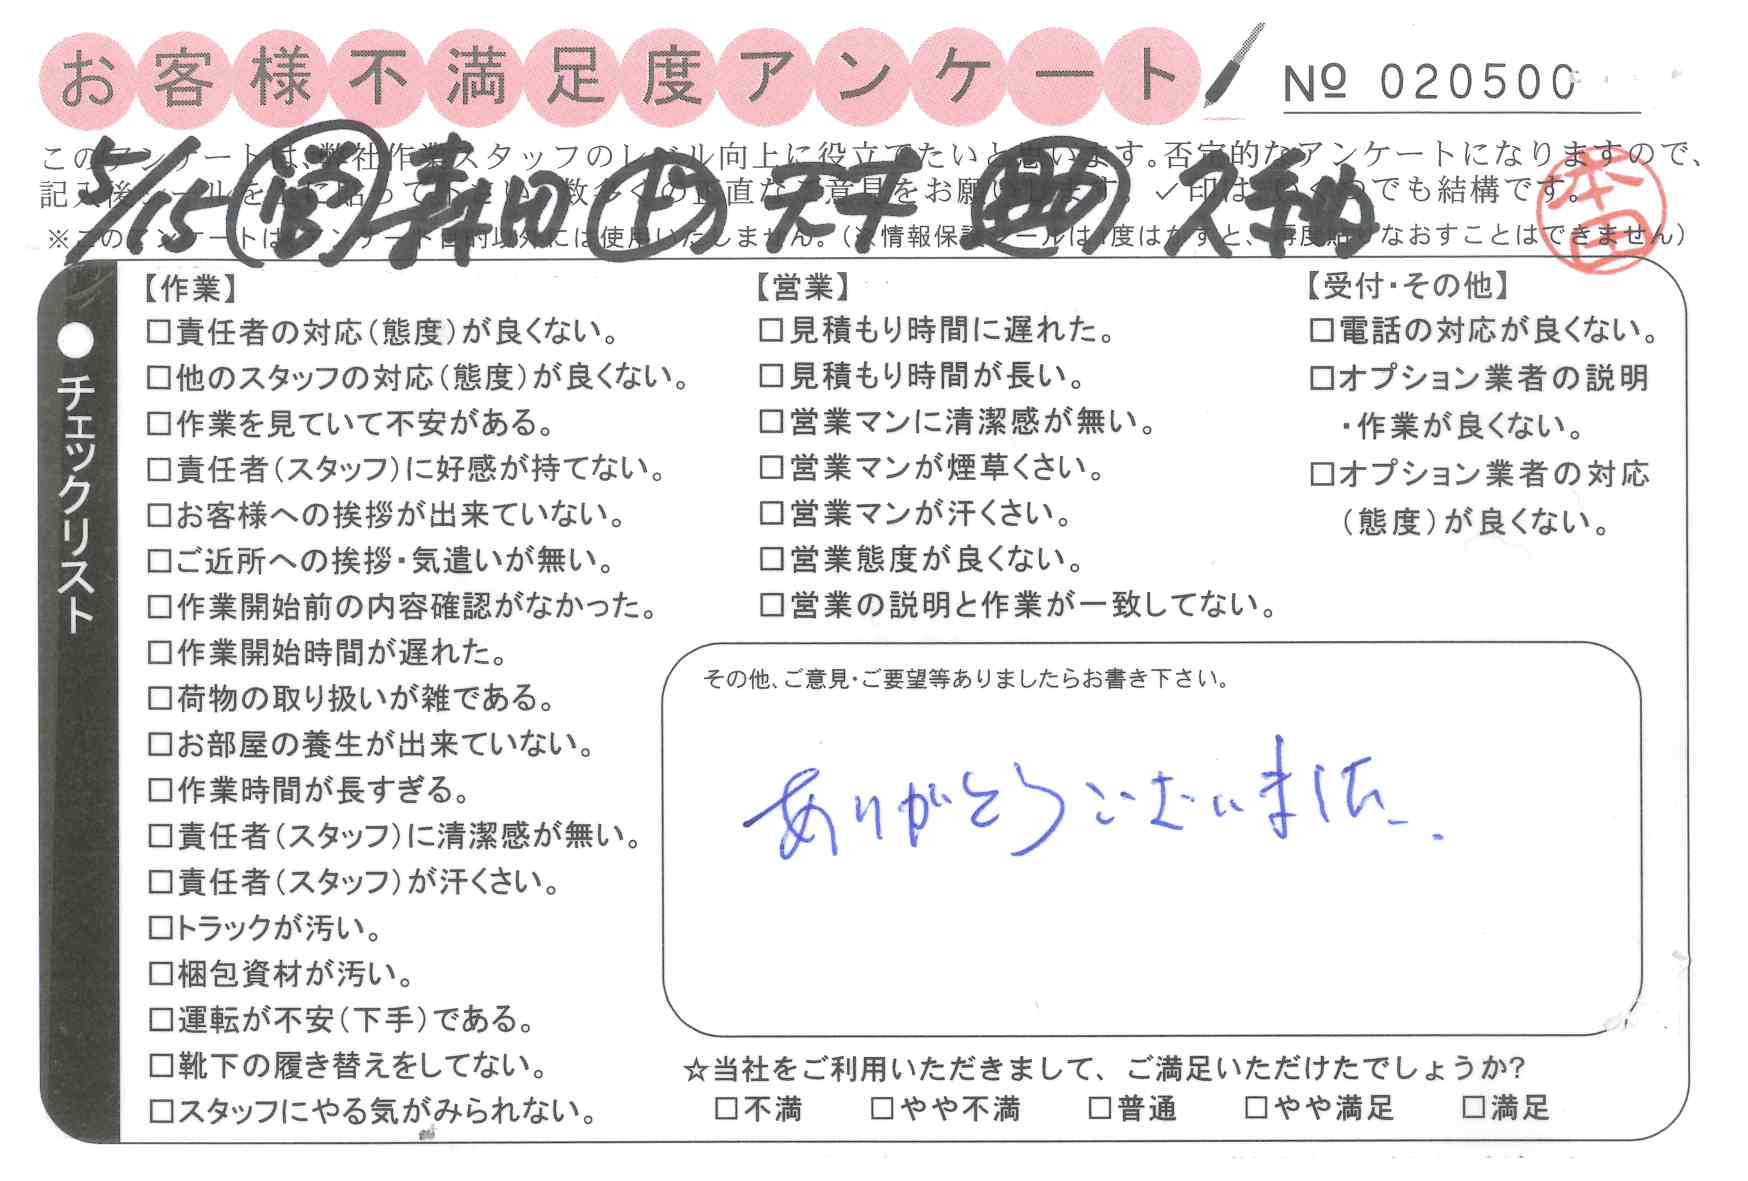 お客様不満足度アンケート
Nº 020500
このアンケートは、弊社作業スタッフのレベル向上に役立てたいと思います。否定的なアンケートになりますので、
記入後シールを上に貼って下さい。数多くの正直なご意見をお願いします。✓印はいくつでも結構です。
※このアンケートはアンケート目的以外には使用いたしません。(※情報保護シールは1度はがすと、再度貼りなおすことはできません)
5/15 営
本田
●チェックリスト
【作業】
□責任者の対応(態度)が良くない。
□他のスタッフの対応(態度)が良くない。
□作業を見ていて不安がある。
□責任者(スタッフ)に好感が持てない。
□お客様への挨拶が出来ていない。
□ご近所への挨拶・気遣いが無い。
□作業開始前の内容確認がなかった。
□作業開始時間が遅れた。
□荷物の取り扱いが雑である。
□お部屋の養生が出来ていない。
□作業時間が長すぎる。
□責任者(スタッフ)に清潔感が無い。
□責任者(スタッフ)が汗くさい。
□トラックが汚い。
□梱包資材が汚い。
□運転が不安(下手)である。
□靴下の履き替えをしてない。
□スタッフにやる気がみられない。
【営業】
□見積もり時間に遅れた。
□見積もり時間が長い。
□営業マンに清潔感が無い。
□営業マンが煙草くさい。
□営業マンが汗くさい。
□営業態度が良くない。
□営業の説明と作業が一致してない。
【受付・その他】
□電話の対応が良くない。
□オプション業者の説明
・作業が良くない。
□オプション業者の対応
(態度)が良くない。
その他、ご意見・ご要望等ありましたらお書き下さい。
ありがとうございました.
☆当社をご利用いただきまして、ご満足いただけたでしょうか?
□不満 □やや不満 □普通 □やや満足 □満足